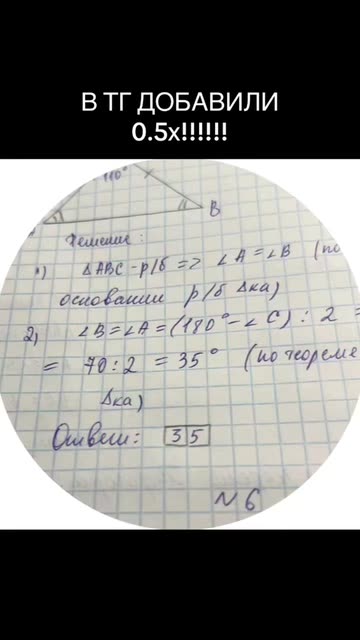 В ТГ ДОБАВИЛИ
0.5x!!!!!!
110°
B
Решение:
1) ΔABC - р/б => ∠A = ∠B (по
основании р/б Δка)
2) ∠B = ∠A = (180° - ∠C) : 2 =
= 70 : 2 = 35° (по теореме
Δка)
Ответ: 35
№ 6